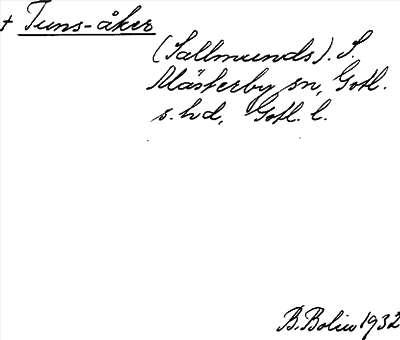 + Tuns-åker
(Sallmunds). S.
Mästerby sn, Gotl.
s. hd, Gotl. l.
B. Bolin 1932